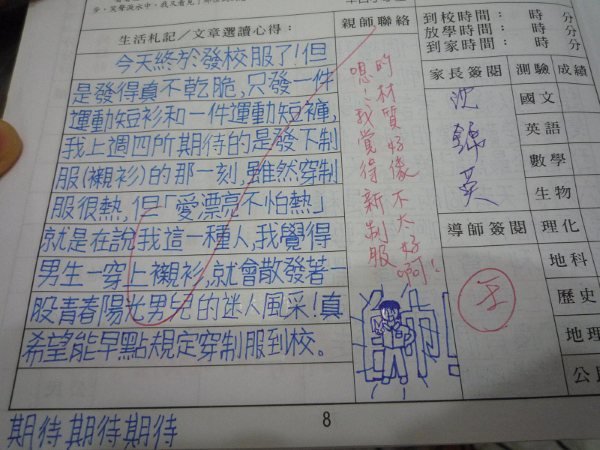 旁，笑聲淚水中，我又看見了
生活札記／文章選讀心得：
今天終於發校服了！但
是發得真不乾脆，只發一件
運動短衫和一件運動短褲，
我上週四所期待的是發下制
服(襯衫)的那一刻，雖然穿制
服很熱，但「愛漂亮不怕熱」
就是在說我這一種人，我覺得
男生一穿上襯衫，就會散發著一
股青春陽光男兒的迷人風采！真
希望能早點規定穿制服到校。
期待期待期待
親師聯絡
嗯…我覺得新制服
的材質好像不太好啊！
帥！
到校時間： 時 分
放學時間： 時 分
到家時間： 時 分
家長簽閱
測驗 成績
沈錦英
國文
英語
數學
生物
導師簽閱
理化
地科
歷史
地理
公民
8